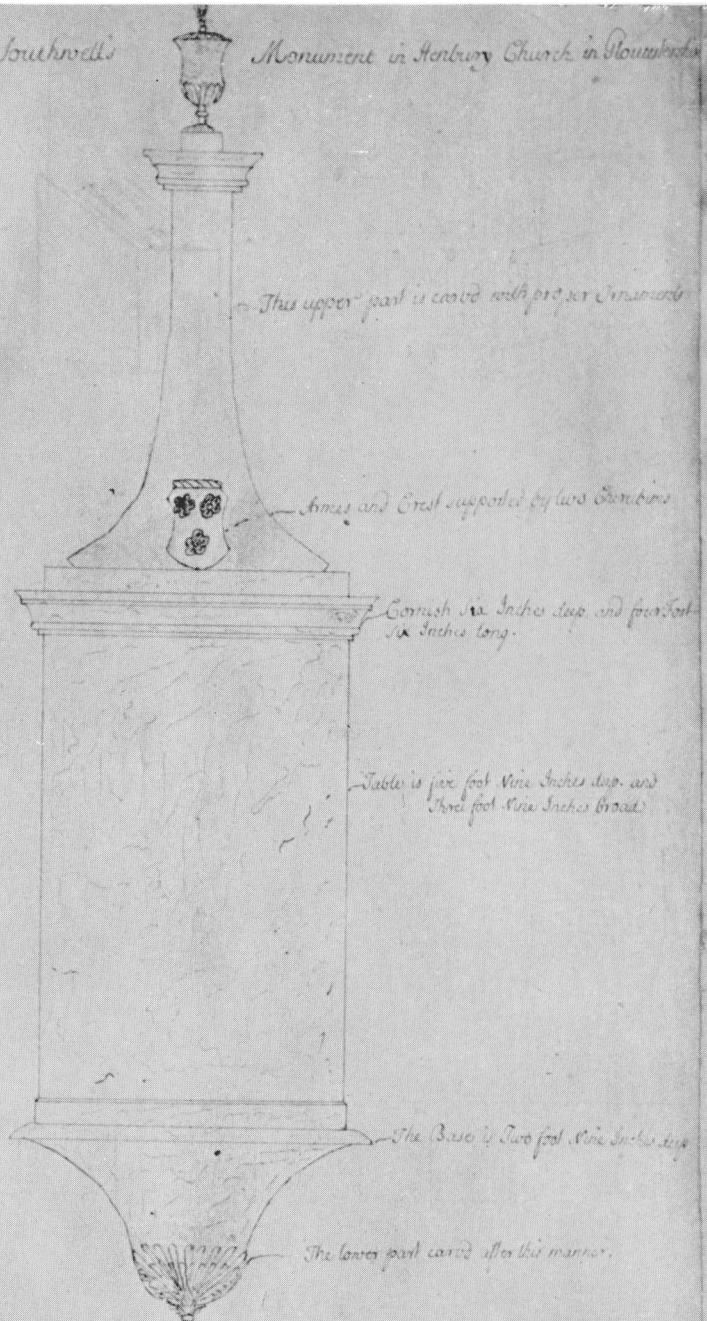 Southwell's Monument in Henbury Church in Gloucestershire
This upper part is carvd with proper Ornaments
Armes and Crest supported by two Cherubims
Cornish six Inches deep. and four Foot
six Inches long.
Table is five foot Nine Inches deep. and
Three foot Nine Inches broad
The Base is Two foot Nine Inches deep
The lower part carvd after this manner.